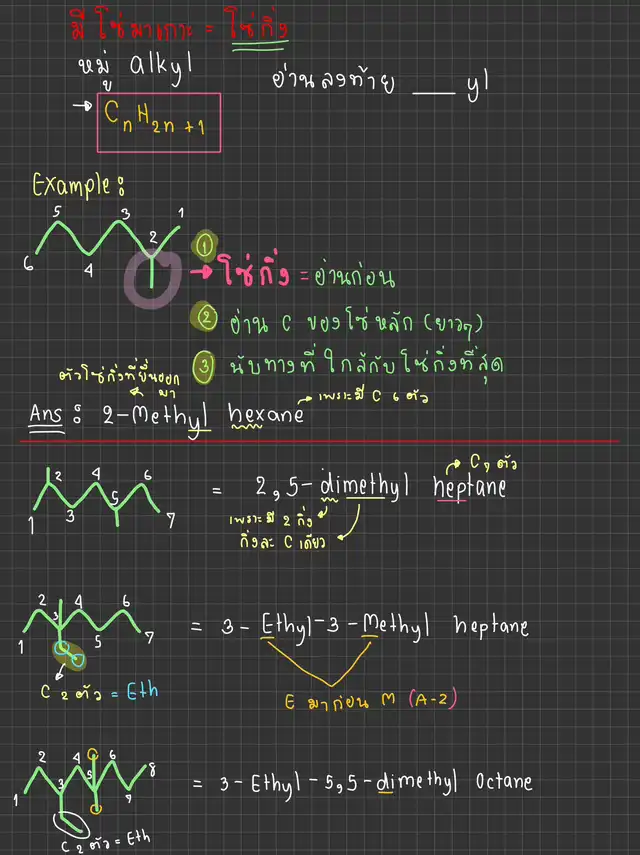 มีโซ่มาเกาะ = โซ่กิ่ง
หมู่ alkyl
อ่านลงท้าย ___ yl
→ CnH2n+1
Example:
5 3 1
2
6 4
① → โซ่กิ่ง = อ่านก่อน
② อ่าน C ของโซ่หลัก (ยาวๆ)
③ นับทางที่ใกล้กับโซ่กิ่งที่สุด
ตัวโซ่กิ่งที่ยื่นออกมา
Ans : 2-Methyl hexane → เพราะมี C 6 ตัว
2 4 6
5
1 3 7
= 2,5-dimethyl heptane
→ C 7 ตัว
เพราะมี 2 กิ่ง
กิ่งละ C เดียว
2 3 4 6
1 5 7
= 3-Ethyl-3-Methyl heptane
C 2 ตัว = Eth
E มาก่อน M (A-Z)
2 4 6 8
5
1 3 7
= 3-Ethyl-5,5-dimethyl Octane
C 2 ตัว = Eth